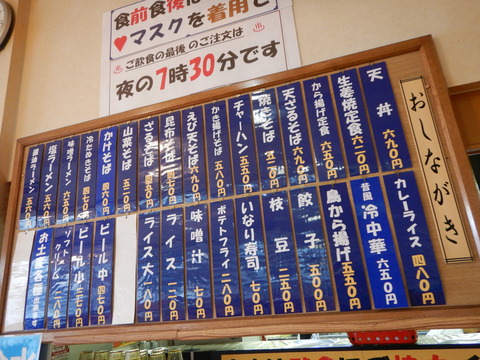 食前食後は
♥マスクを着用で
♨ご飲食の最後のご注文は♨
夜の7時30分です
おしながき
天丼 六九〇円
生姜焼定食 六二〇円
から揚げ定食 六五〇円
天ざるそば 六九〇円
焼きそば 五二〇円
チャーハン 五五〇円
かき揚げそば 五八〇円
えび天そば 六七〇円
昆布そば 四七〇円
ざるそば 四五〇円
山菜そば 五二〇円
かけそば 四二〇円
冷たぬきそば 四七〇円
味噌ラーメン 六五〇円
塩ラーメン 五六〇円
醤油ラーメン 五六〇円
カレーライス 四八〇円
昔風 冷中華 六五〇円
鳥から揚げ 五五〇円
餃子 五〇〇円
枝豆 二五〇円
いなり寿司 七〇円
ポテトフライ 二八〇円
味噌汁 七〇円
ライス 一二〇円
ライス大 一八〇円
ビール中 四七〇円
ビール小 二七〇円
ソフトクリーム 二八〇円
お土産各種